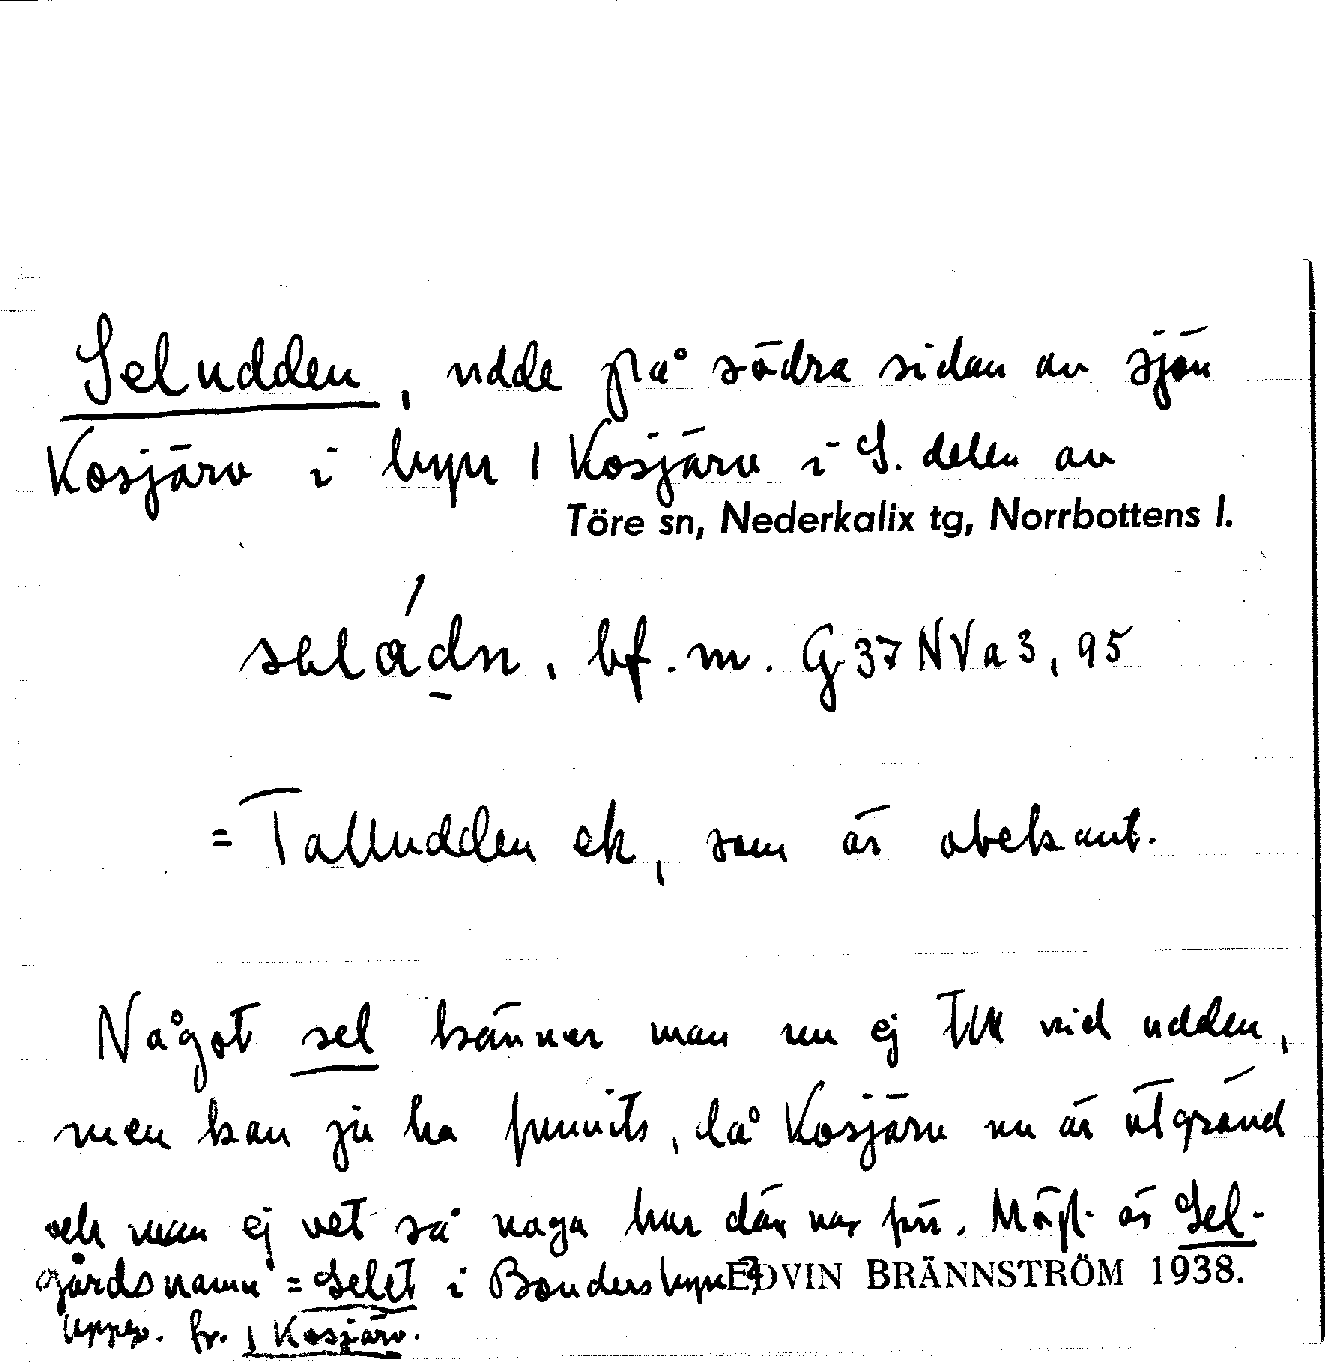 Seludden, udde på södra sidan av sjön
Kosjärv i byn 1 Kosjärv i S. delen av
Töre sn, Nederkalix tg, Norrbottens l.
seládn, bf. m. G 37 NV a 3, 95
= Talludden ek, som är obekant.
Något sel känner man nu ej till vid udden,
men kan ju ha funnits, då Kosjärv nu är utgrävd
och man ej vet så noga hur där var förr. Möjl. är Sel-
gårdsnamn = Selet i Bondersbyn?
EDVIN BRÄNNSTRÖM 1938.
Uppg. fr. 1 Kosjärv.